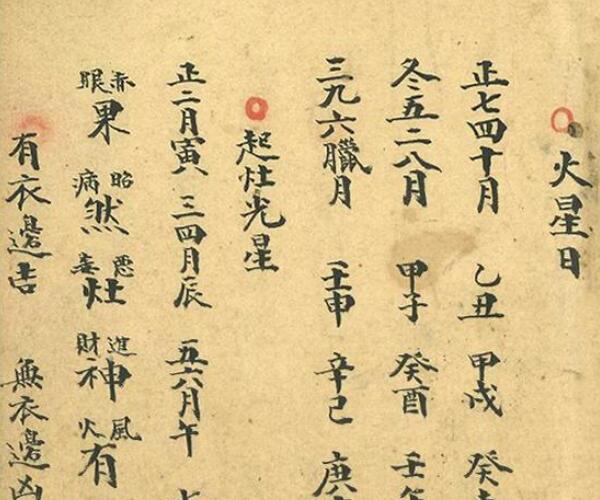 火星日
正七四十月 乙丑 甲戌 癸
冬五二八月 甲子 癸酉 壬
三九六臘月 壬申 辛巳 庚
起灶光星
正二月寅 三四月辰 五六月午
赤眼果 昭病然 悪妻灶 進財神 風火有
有衣邊吉 無衣邊凶